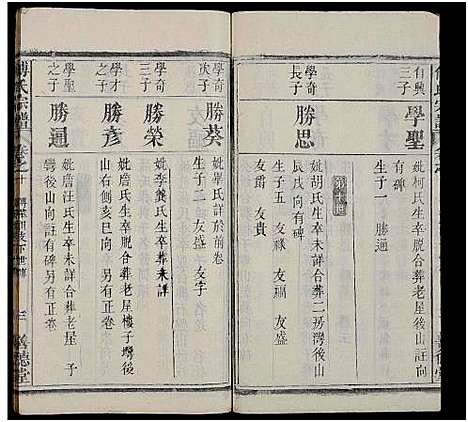 自興
三子
學聖
妣柯氏生卒未詳合葬老屋後山註向
有碑
生子一 勝通
學奇
長子
勝思
妣胡氏生卒未詳合葬二房灣後山
辰戌向有碑
生子五 友祿 友福 友盛
友爵 友貴
學奇
次子
勝葵
妣畢氏詳於前卷
生子二 友盛 友字
學奇
三子
勝榮
妣李龔氏生卒葬未詳
學才
之子
勝彥
妣詹氏生卒脫合葬老屋樓子塆後
山右側亥巳向 另有正卷
學聖
之子
勝通
妣詹汪氏生卒未詳合葬老屋 予
塆後山向註有碑另有正卷
傅氏宗譜
三
義德堂